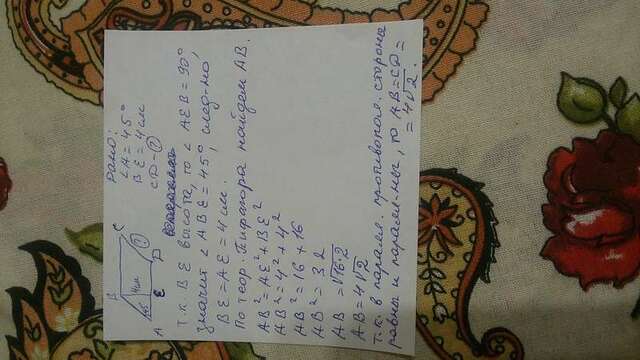 B C
45° 4см ?
A E D
Дано:
∠A = 45°
BE = 4 см
CD - ?
Т.к. BE высота, то ∠ AEB = 90°
значит ∠ ABE = 45°, след-но,
BE = AE = 4 см.
По теор. Пифагора найдем AB.
AB² = AE² + BE²
AB² = 4² + 4²
AB² = 16 + 16
AB² = 32
AB = √16·2
AB = 4√2
Т.к. в паралл. противопол. стороны
равны и паралл-ны, то AB = CD =
= 4√2.